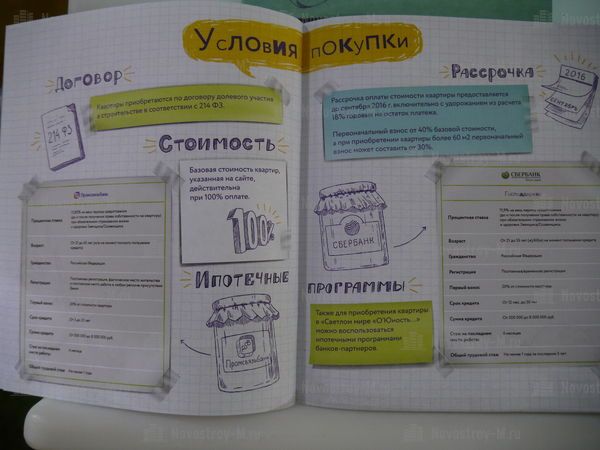 Условия покупки
Договор
Квартиры приобретаются по договору долевого участия
в строительстве в соответствии с 214 ФЗ.
214 ФЗ
Стоимость
Базовая стоимость квартир,
указанная на сайте,
действительна
при 100% оплате.
100%
Промсвязьбанк
Процентная ставка
Возраст
Гражданство
Российская Федерация
Регистрация
Первый взнос
20% от стоимости квартиры
Срок кредита
Сумма кредита
Стаж на последнем
месте работы
4 месяца
Общий трудовой стаж
Не менее 1 года
Ипотечные программы
Промсвязьбанк
Рассрочка
2016
сентябрь
Рассрочка оплаты стоимости квартиры предоставляется
до сентября 2016 г. включительно с удорожанием из расчета
18% годовых на остаток платежа.
Первоначальный взнос от 40% базовой стоимости,
а при приобретении квартиры более 60 м2 первоначальный
взнос может составить от 30%.
СБЕРБАНК
Также для приобретения квартиры
в «Светлом мире «О'Юность...»
можно воспользоваться
ипотечными программами
банков-партнеров.
СБЕРБАНК
Господдержка
Процентная ставка
Возраст
Гражданство
Российская Федерация
Регистрация
Первый взнос
20% от стоимости квартиры
Срок кредита
От 12 мес. до 30 лет
Сумма кредита
Стаж на последнем
месте работы
6 месяцев
Общий трудовой стаж
Не менее 1 года за последние 5 лет
Novostroy-M.ru